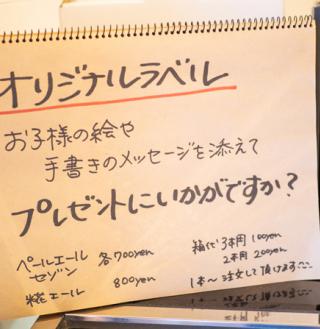 オリジナルラベル
お子様の絵や
手書きのメッセージを添えて
プレゼントにいかがですか?
ペールエール 各700yen
セゾン
糀エール 800yen
箱代 3本用 100yen
2本用 200yen
1本〜 注文して頂けます